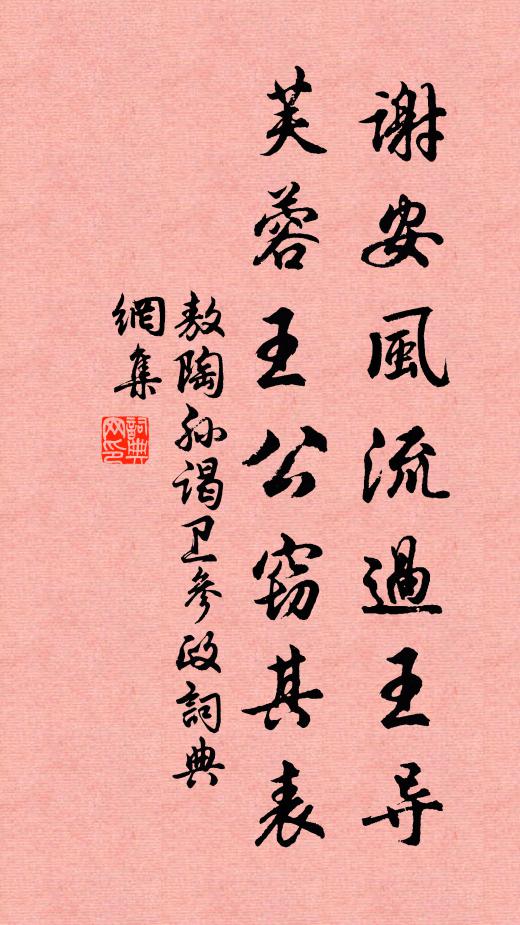 谢安風流過王导
芙蓉王公窈其表
敖陶孙谒卫參政詞典
網集
詞典网印